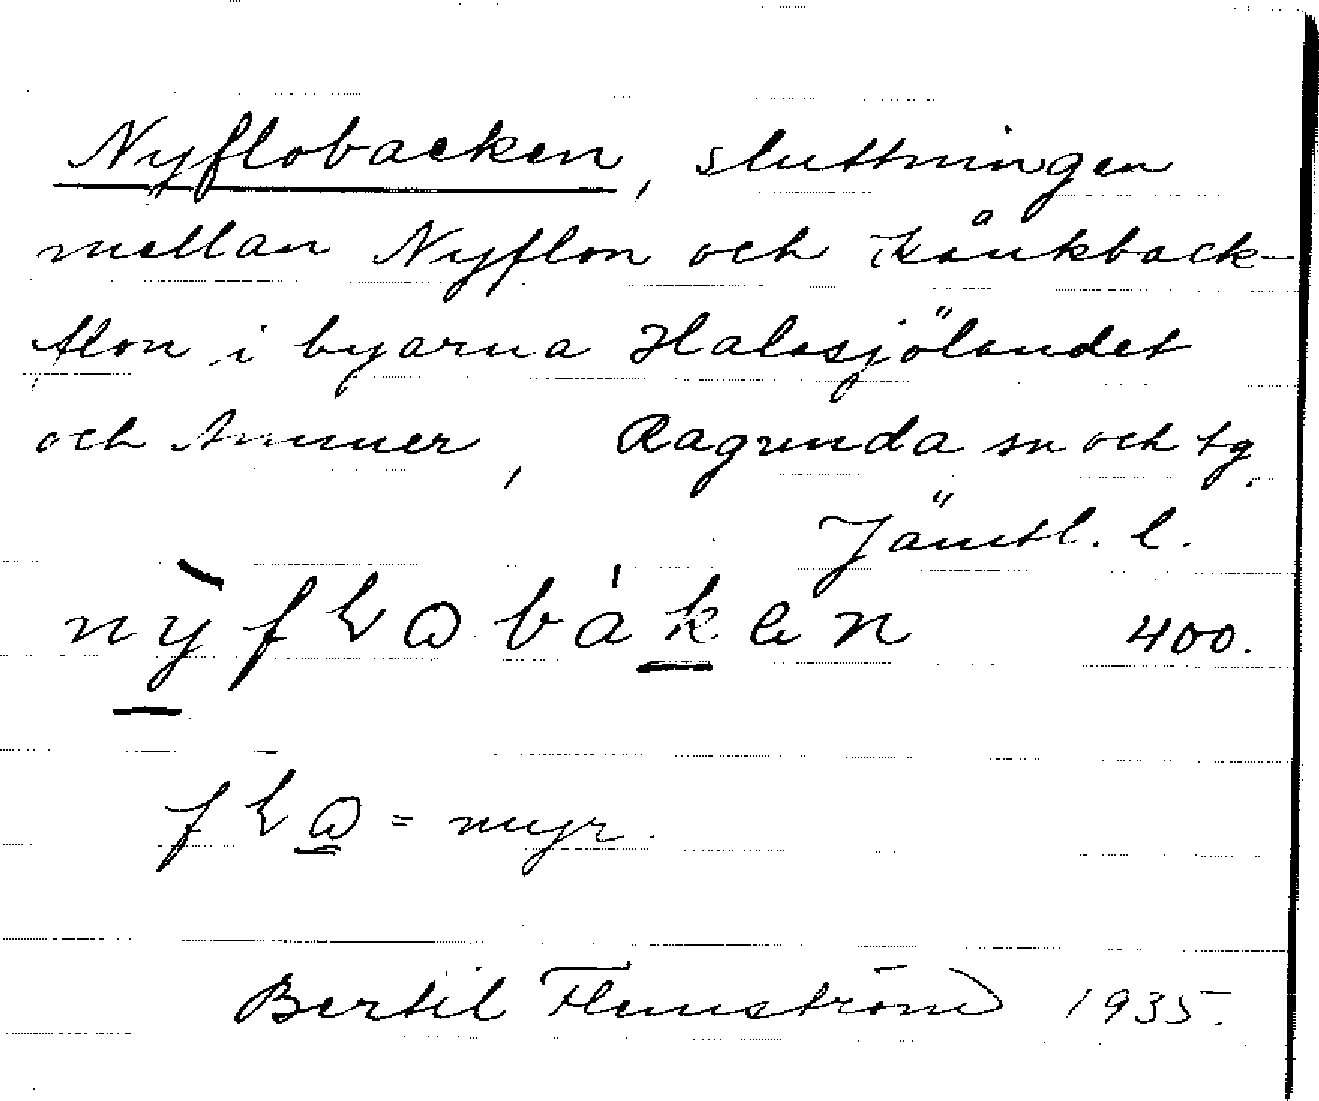 Nyflobacken, sluttningen
mellan Nyflon och Kånkback-
flon i byarna Halasjölandet
och Ammer, Ragunda sn och tg
Jämtl. l.
400.
= myr.
Bertil Flemström 1935.